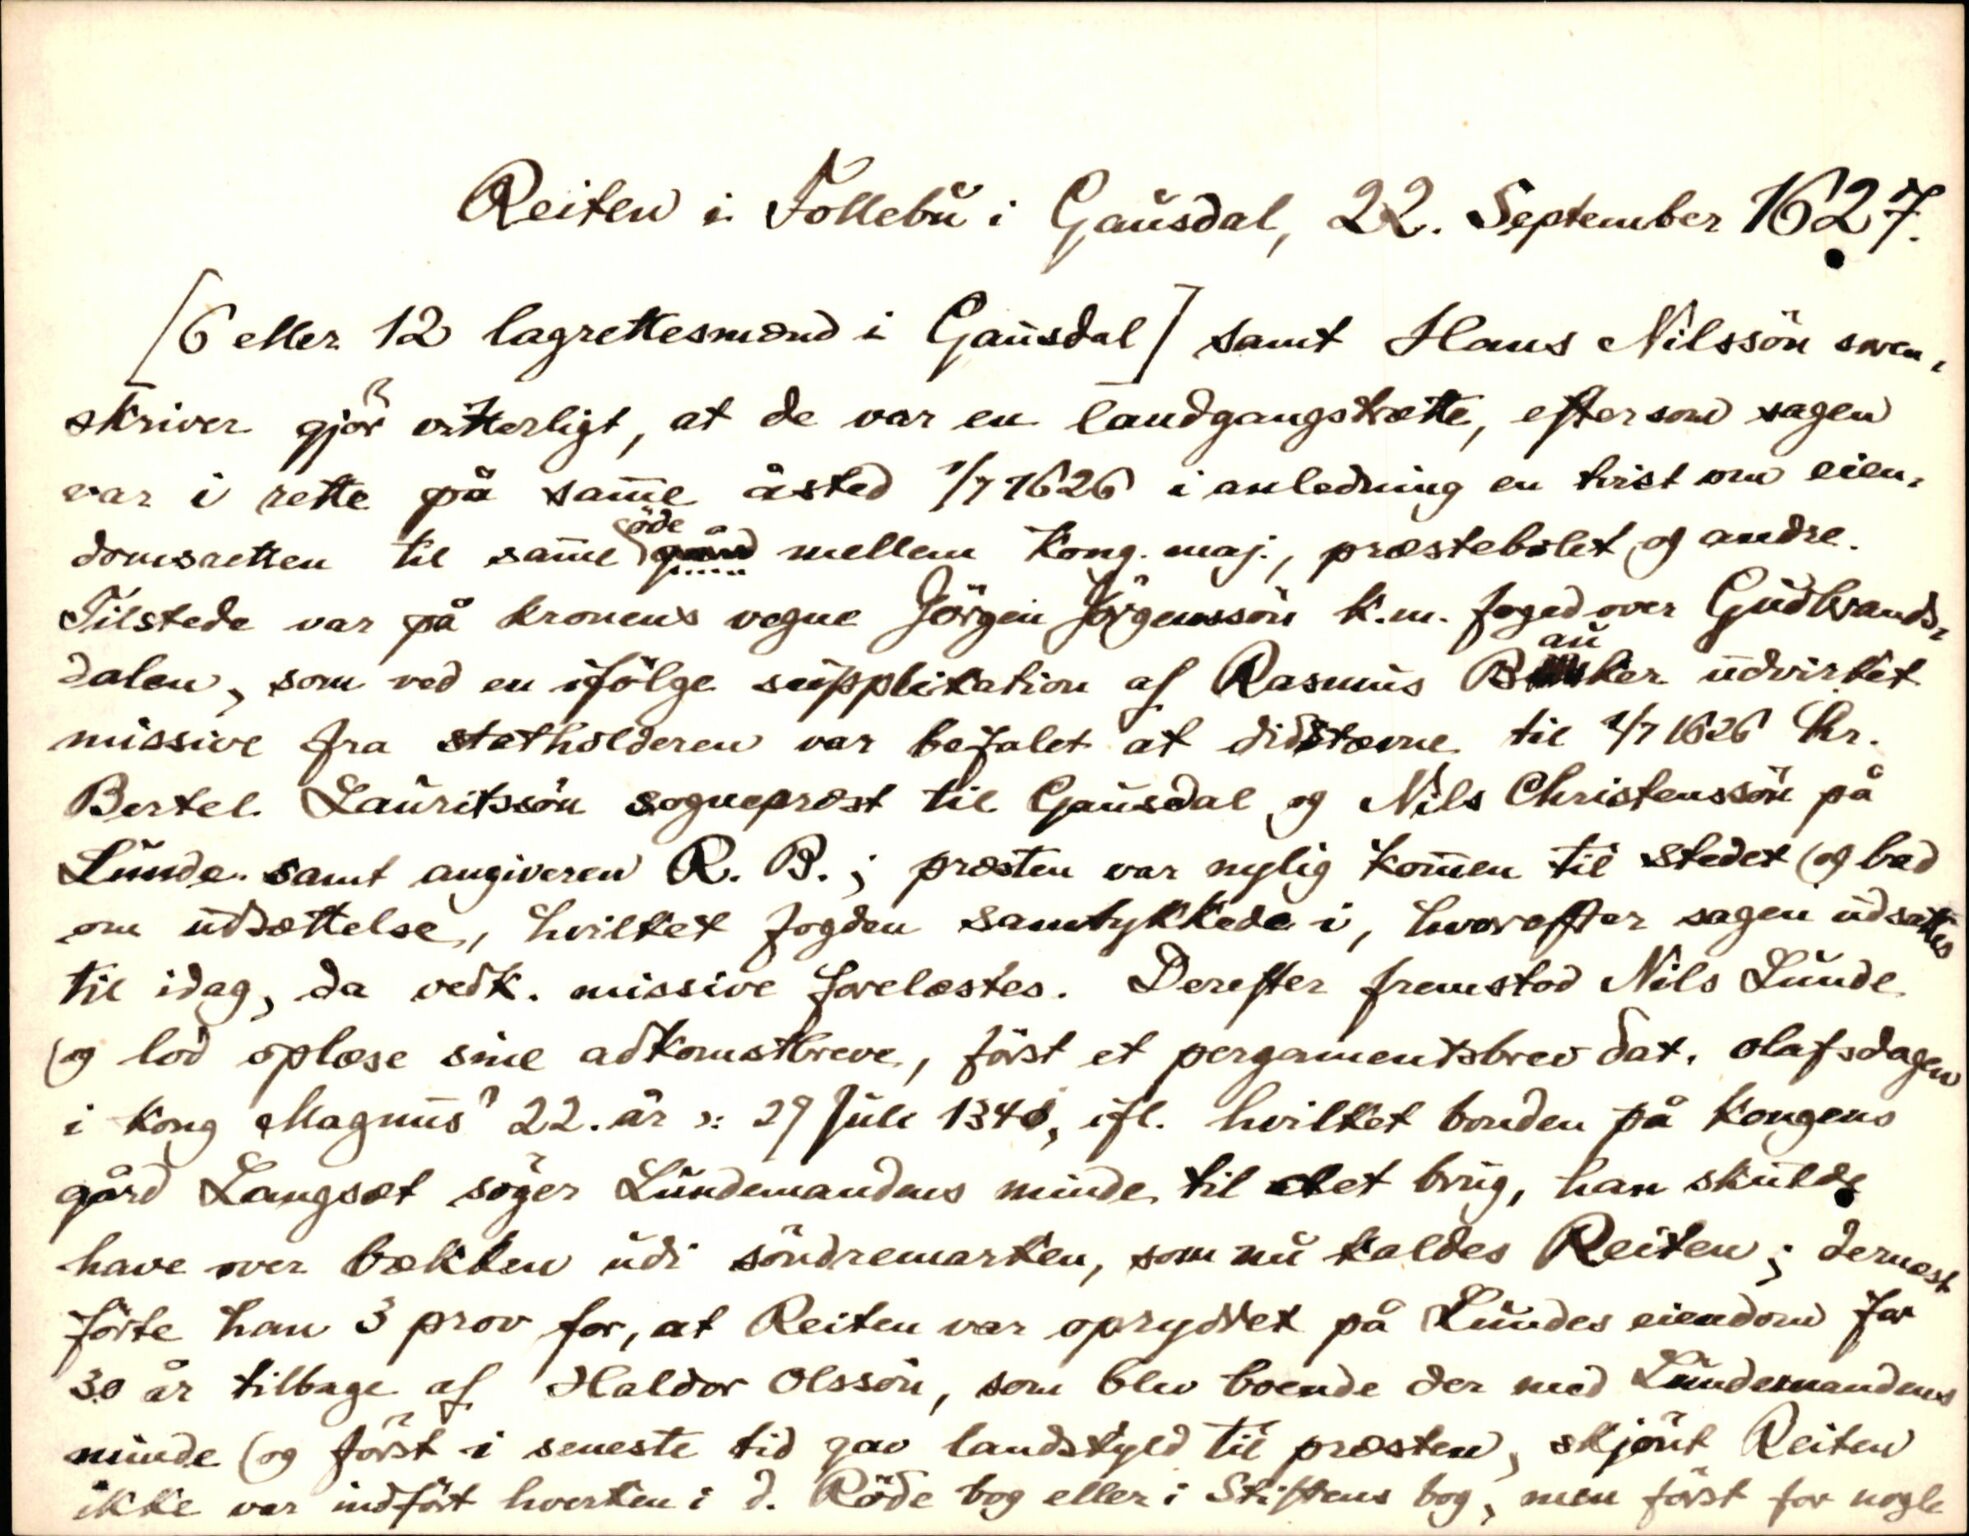 Reiten i Follebu i Gausdal, 22. September 1627.
[6 eller 12 lagrettesmænd i Gausdal] samt Hans Nilssön soren-
skriver gjör vitterligt, at de var en landgangstrætte, eftersom sagen
var i rette på samme åsted 1/7 1626 i anledning en tvist om eien-
domsretten til samme öde gård mellem Kong. maj., præstebolet og andre.
Tilstede var på kronens vegne Jörgen Jörgenssön k.m. foged over Gudbrands-
dalen, som ved en ifölge supplikation af Rasmus Bauker udvirket
missive fra statholderen var befalet at didstævne til 1/7 1626 hr.
Bertel Lauritssön sogneprest til Gausdal og Nils Christenssön på
Lunde samt angiveren R. B.; præsten var nylig kommen til stedet og bad
om udsættelse, hvilket fogden samtykkede i, hvorefter sagen udsattes
til idag, da vedk. missive forelæstes. Derefter fremstod Nils Lunde
og lod oplæse sine adkomstbreve, först et pergamentsbrev dat. olafsdagen
i kong Magnus' 22. år ɔ: 29 juli 1340, ifl. hvilket bonden på kongens
gård Langsæt söger Lundemandens minde til det brug, han skulde
have over bækken udi söndremarken, som nu kaldes Reiten; dernæst
förte han 3 prov for, at Reiten var opryddet på Lundes eiendom for
30 år tilbage af Haldor Olssön, som blev boende der med Lundemandens
minde og först i seneste tid gav landskyld til præsten, skjönt Reiten
ikke var indfört hverken i d. Röde bog eller i Stiftens bog, men först for nogle